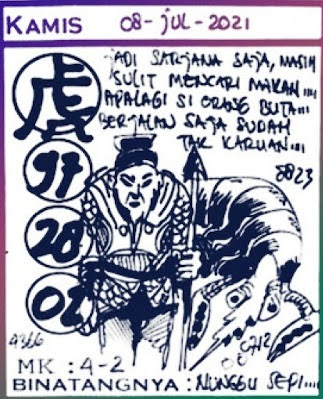 KAMIS 08-JUL-2021
JADI SARJANA SAJA, MASIH
SULIT MENCARI MAKAN....
APALAGI SI ORANG BUTA...
BERJALAN SAJA SUDAH
TAK KARUAN....
虎
97
28
02
8823
4366
0712
MK : 4-2
BINATANGNYA : NUNGGU SEPI....